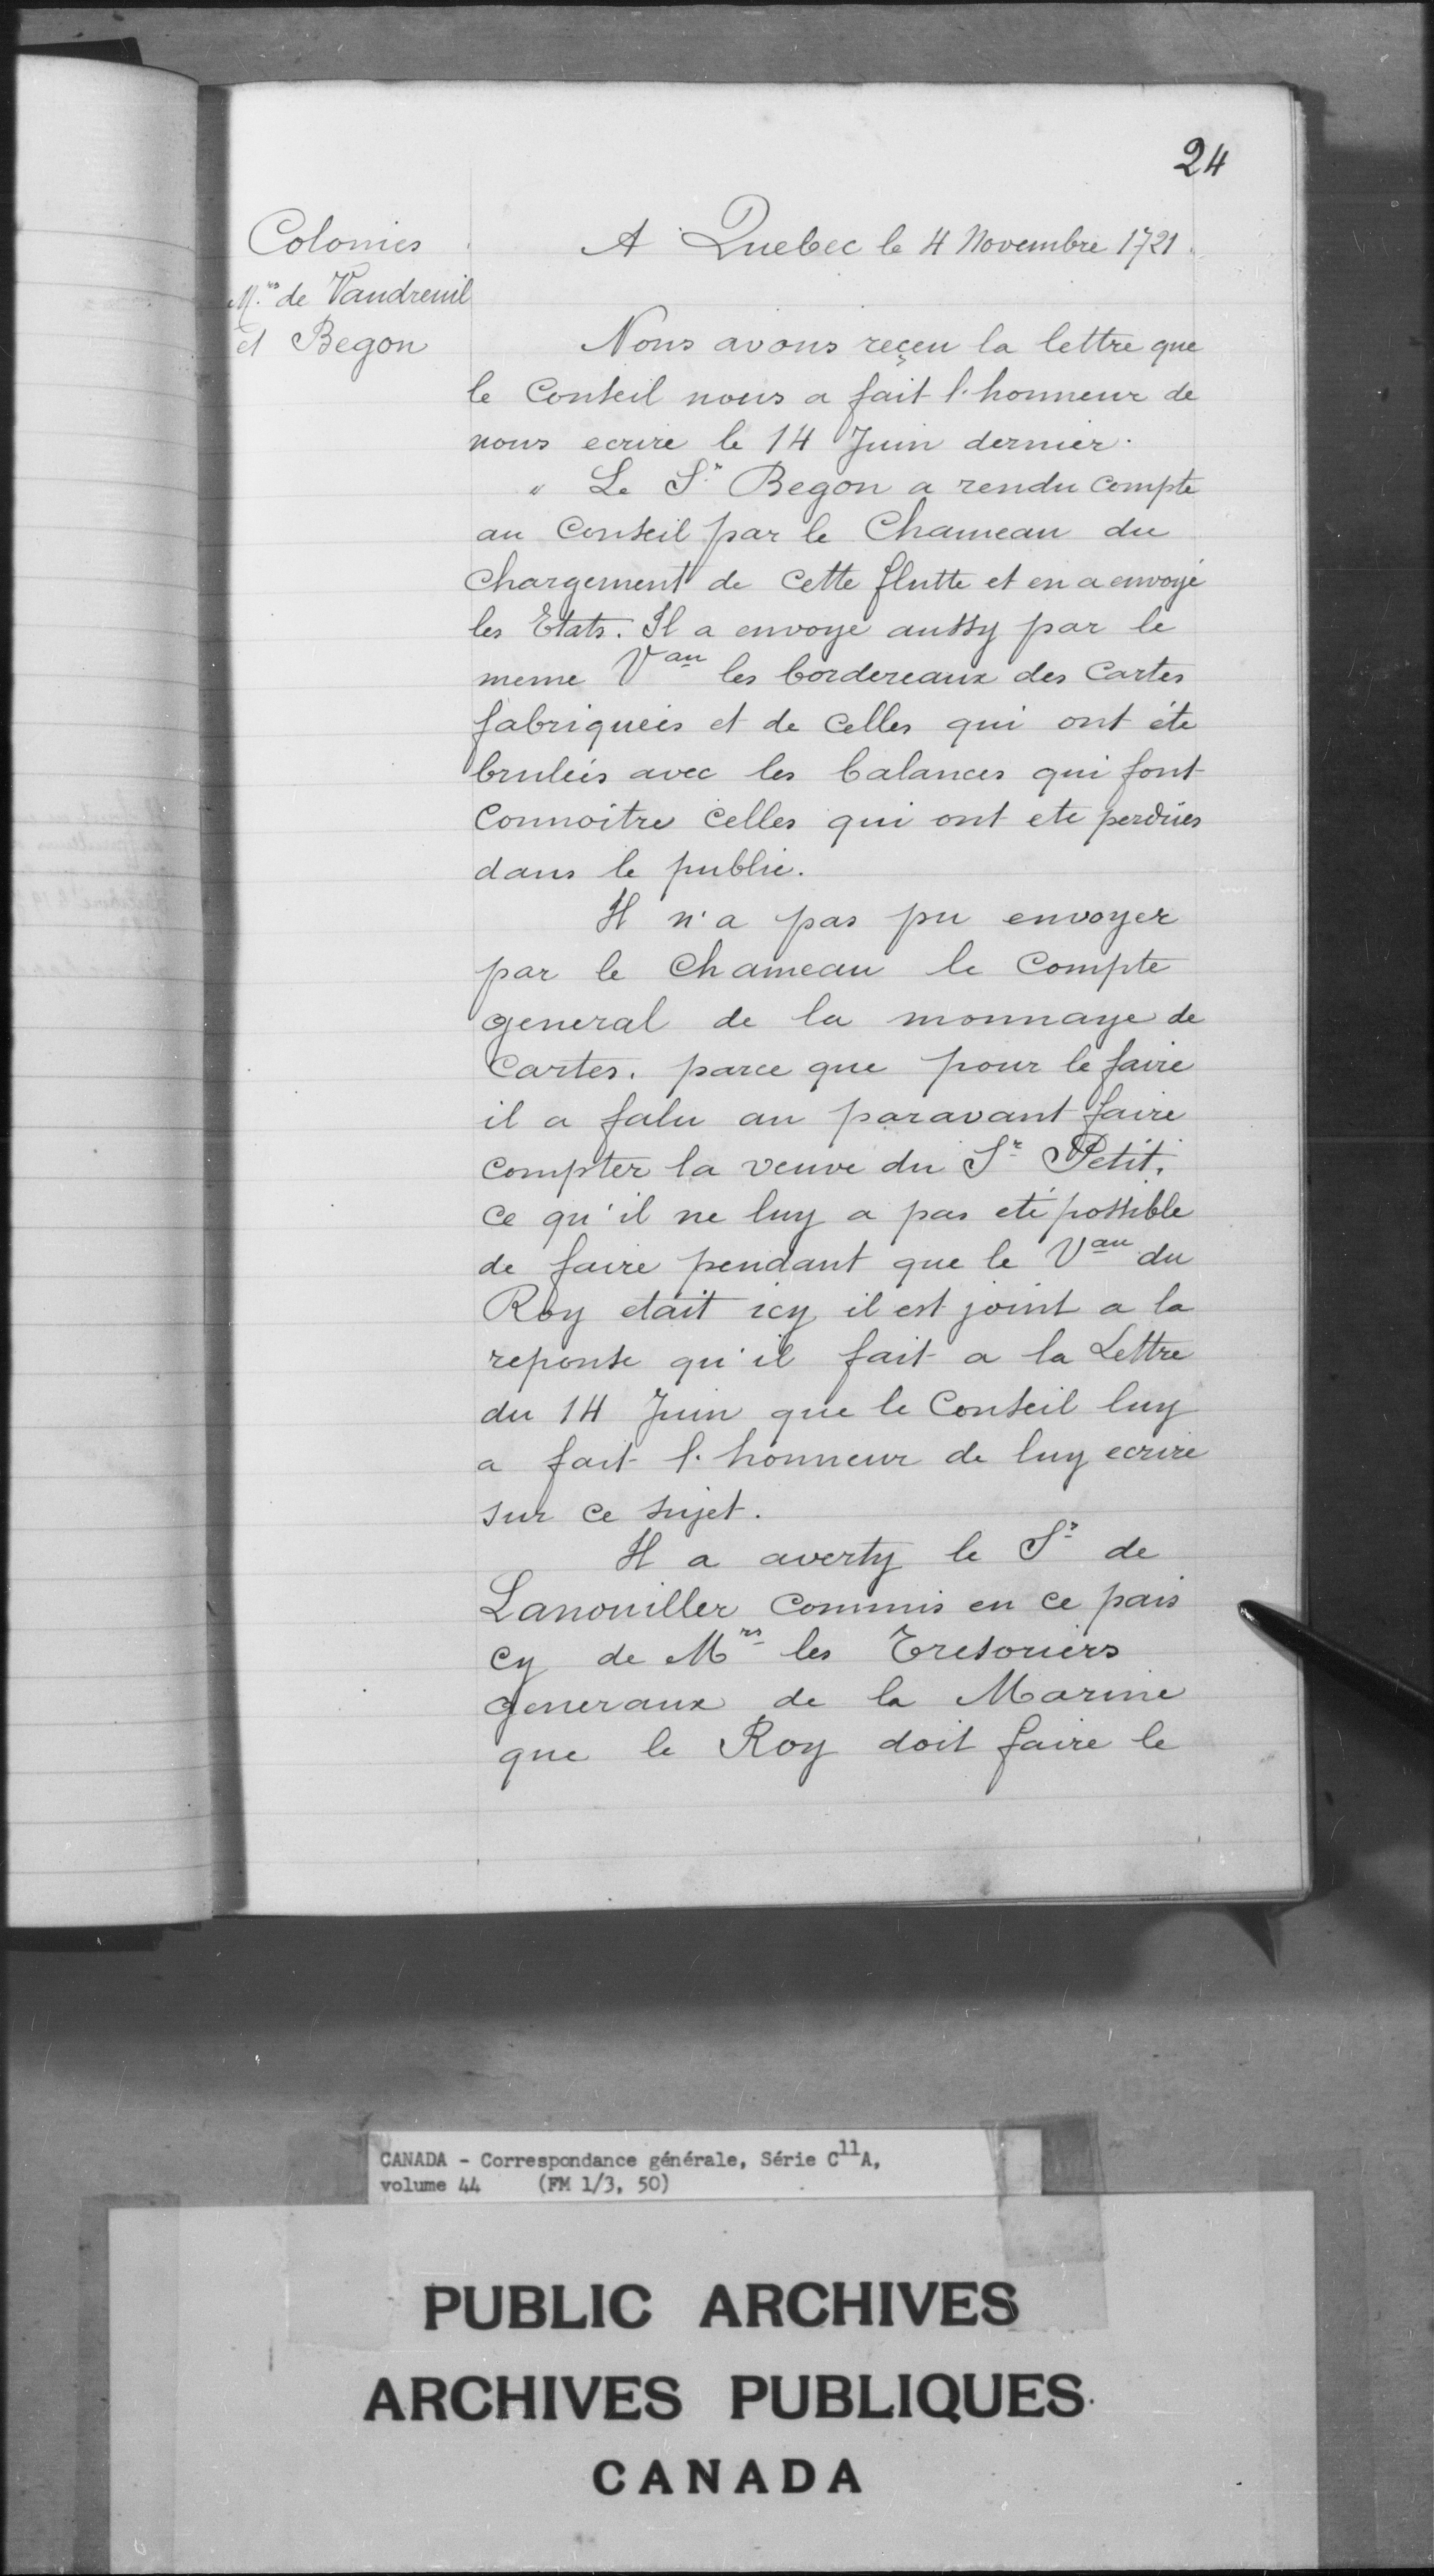 24
Colonies
M.rs de Vaudreuil
et Begon
A Quebec le 4 Novembre 1721.
Nous avons reçeu la lettre que
le Conseil nous a fait l'honneur de
nous ecrire le 14 Juin dernier.
" Le Sr Begon a rendu compte
au Conseil par le Chameau du
chargement de cette flutte et en a envoyé
les Etats. Il a envoye aussy par le
meme Vau les bordereaux des Cartes
fabriqueés et de celles qui ont éte
bruleés avec les balances qui font
connoitre celles qui ont ete perdües
dans le public.
Il n'a pas pu envoyer
par le Chameau le Compte
general de la monnaye de
Cartes. parce que pour le faire
il a falu au paravant faire
compter la veuve du Sr Petit,
ce qu'il ne luy a pas eté possible
de faire pendant que le Vau du
Roy etait icy il est joint a la
reponse qu'il fait a la Lettre
du 14 Juin que le Conseil luy
a fait l'honneur de luy ecrire
sur ce sujet.
Il a averty le Sr de
Lanouiller Commis en ce pais
cy de Mrs les Tresoriers
generaux de la Marine
que le Roy doit faire le
CANADA - Correspondance générale, Série C11A,
volume 44 (FM 1/3, 50)
PUBLIC ARCHIVES
ARCHIVES PUBLIQUES
CANADA